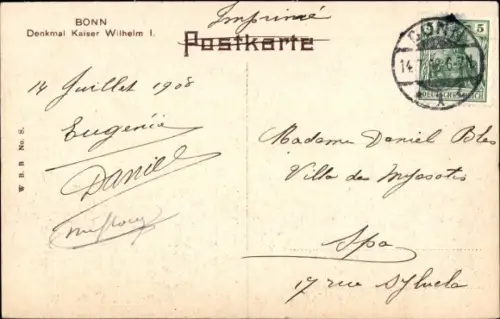 BONN
Denkmal Kaiser Wilhelm I.
Imprimé
Postkarte
BONN
14.7.08.6-7N
5
DEUTSCHES REICH
14 Juillet 1908
Eugénie
Daniel
W. B. B. No. 8.
Madame Daniel
Villa des Myosotis
Spa
17 rue